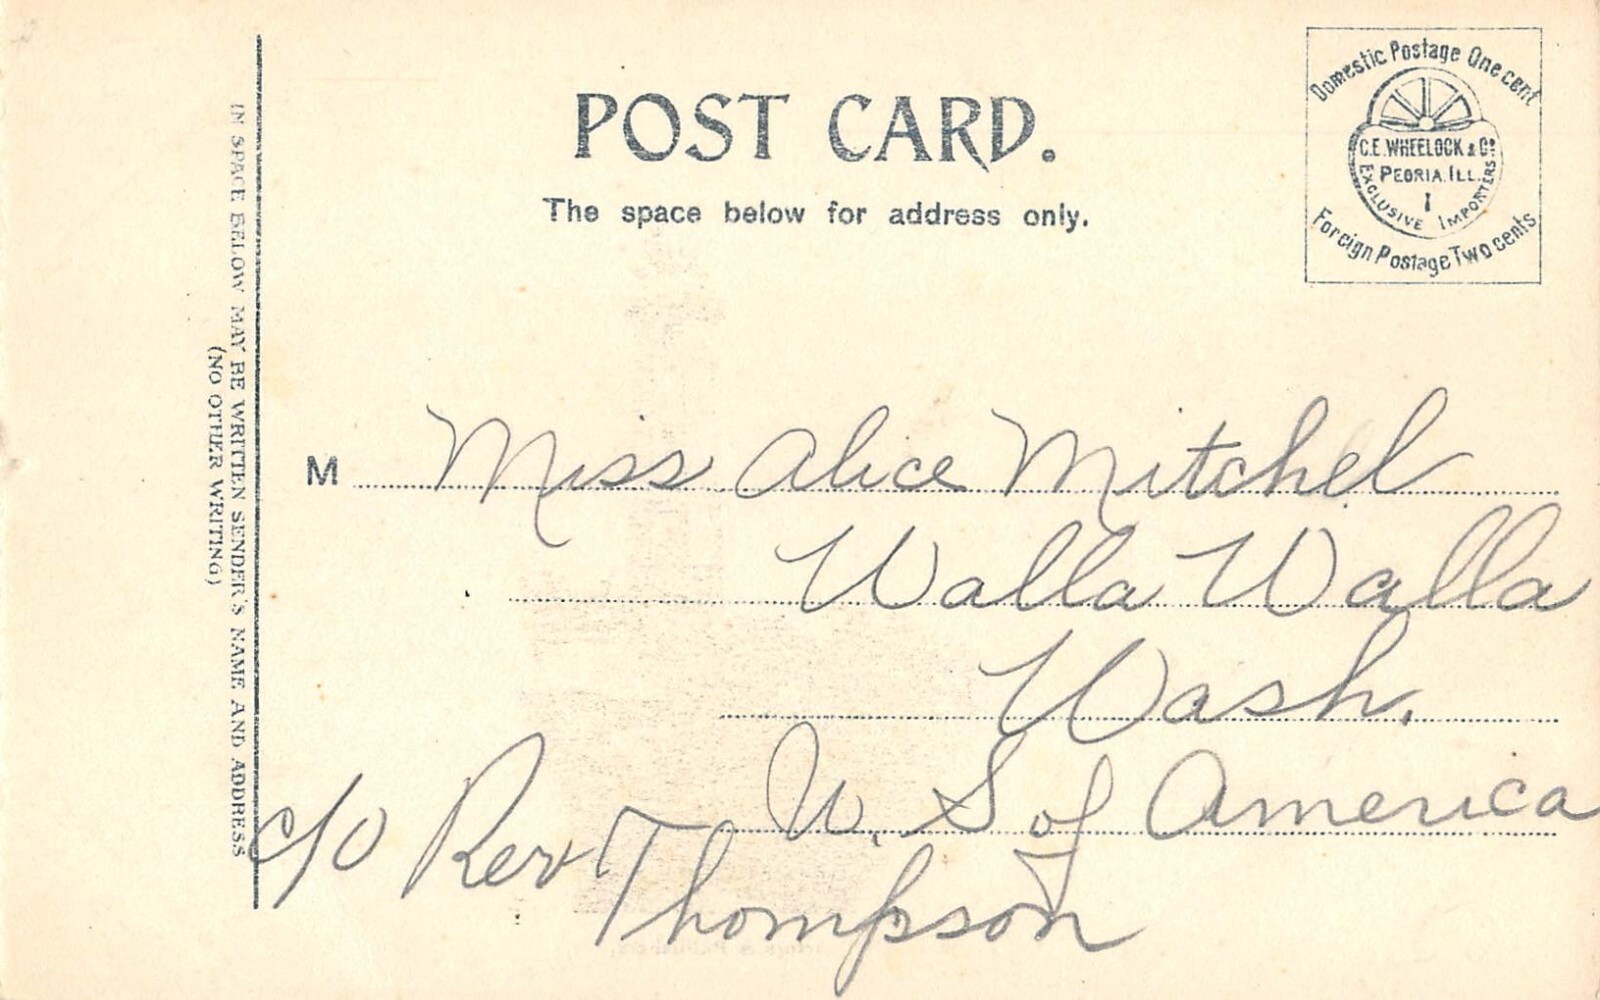 POST CARD.
The space below for address only.
Domestic Postage One cent
C.E. WHEELOCK & Co
PEORIA. ILL.
EXCLUSIVE IMPORTERS
Foreign Postage Two cents
IN SPACE BELOW MAY BE WRITTEN SENDER'S NAME AND ADDRESS
(NO OTHER WRITING)
M Miss Alice Mitchel
Walla Walla
Wash.
U. S of America
c/o Rev Thompson